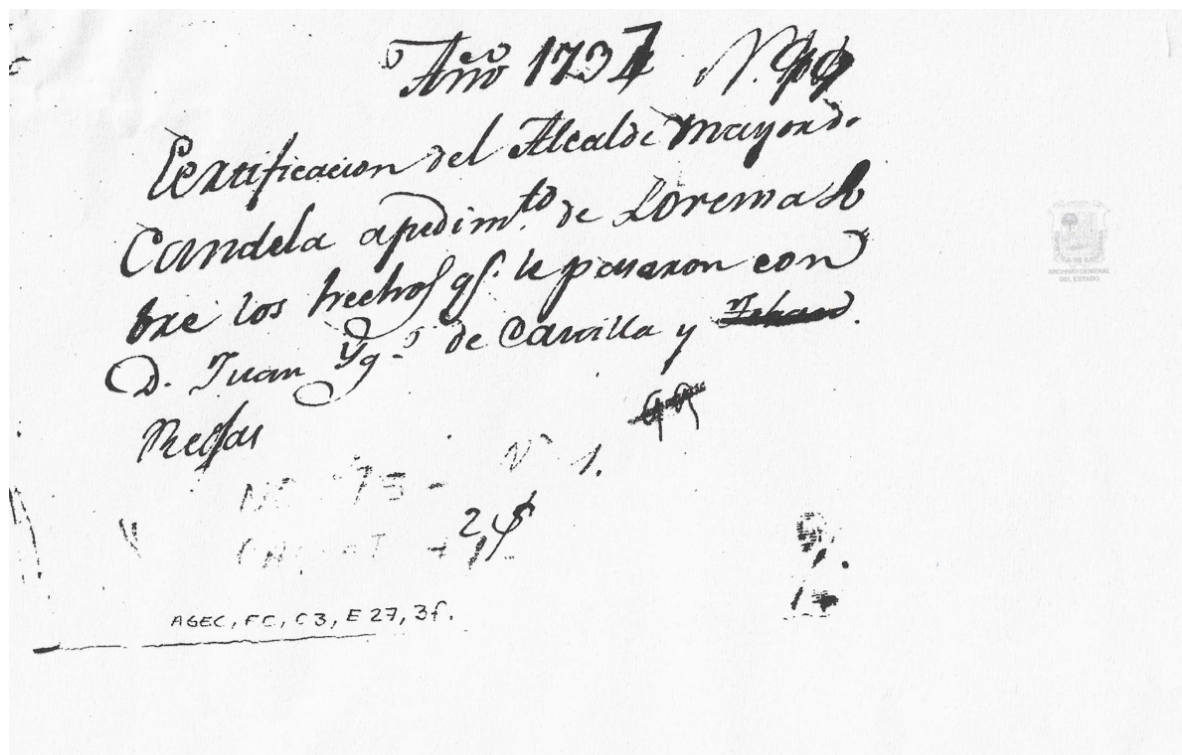 Año 1737 N.
Certificacion del Alcalde mayor de
Candela apedim.to de Lorenza So
bre los hechos q.e le pasaron con
D. Juan Yg.o de Castilla y
Rejas
N 1.
2,45
AGEC, FC, C3, E 27, 3f.
ARCHIVO GENERAL
DEL ESTADO